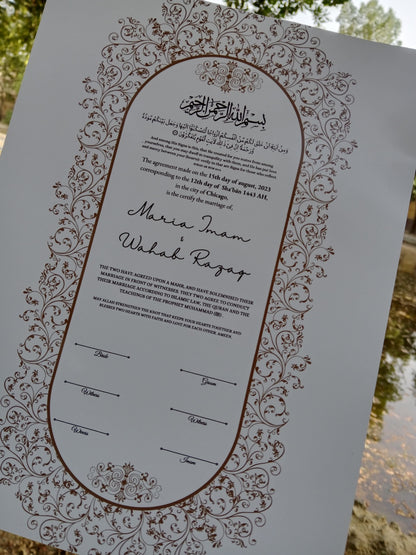 بسم الله الرحمن الرحيم
ومن آياته أن خلق لكم من أنفسكم أزواجا لتسكنوا إليها وجعل بينكم مودة
ورحمة إن في ذلك لآيات لقوم يتفكرون
And among His Signs is this, that He created for you mates from among
yourselves, that you may dwell in tranquility with them, and He has put love
and mercy between your (hearts): verily in that are Signs for those who reflect.
The agreement made on the 15th day of august, 2023
corresponding to the 12th day of Sha'bin 1443 AH,
in the city of Chicago,
is the certify the marriage of,
Maria Imam
&
Wahab Razaq
THE TWO HAVE AGREED UPON A MAHR, AND HAVE SOLEMNISED THEIR
MARRIAGE IN FRONT OF WITNESSES. THEY TWO AGREE TO CONDUCT
THEIR MARRIAGE ACCORDING TO ISLAMIC LAW, THE QURAN AND THE
TEACHINGS OF THE PROPHET MUHAMMAD (ﷺ)
MAY ALLAH STRENGTHEN THE KNOT THAT KEEPS YOUR HEARTS TOGETHER AND
BLESSED TWO HEARTS WITH FAITH AND LOVE FOR EACH OTHER. AMEEN.
Bride
Groom
Witness
Witness
Imam